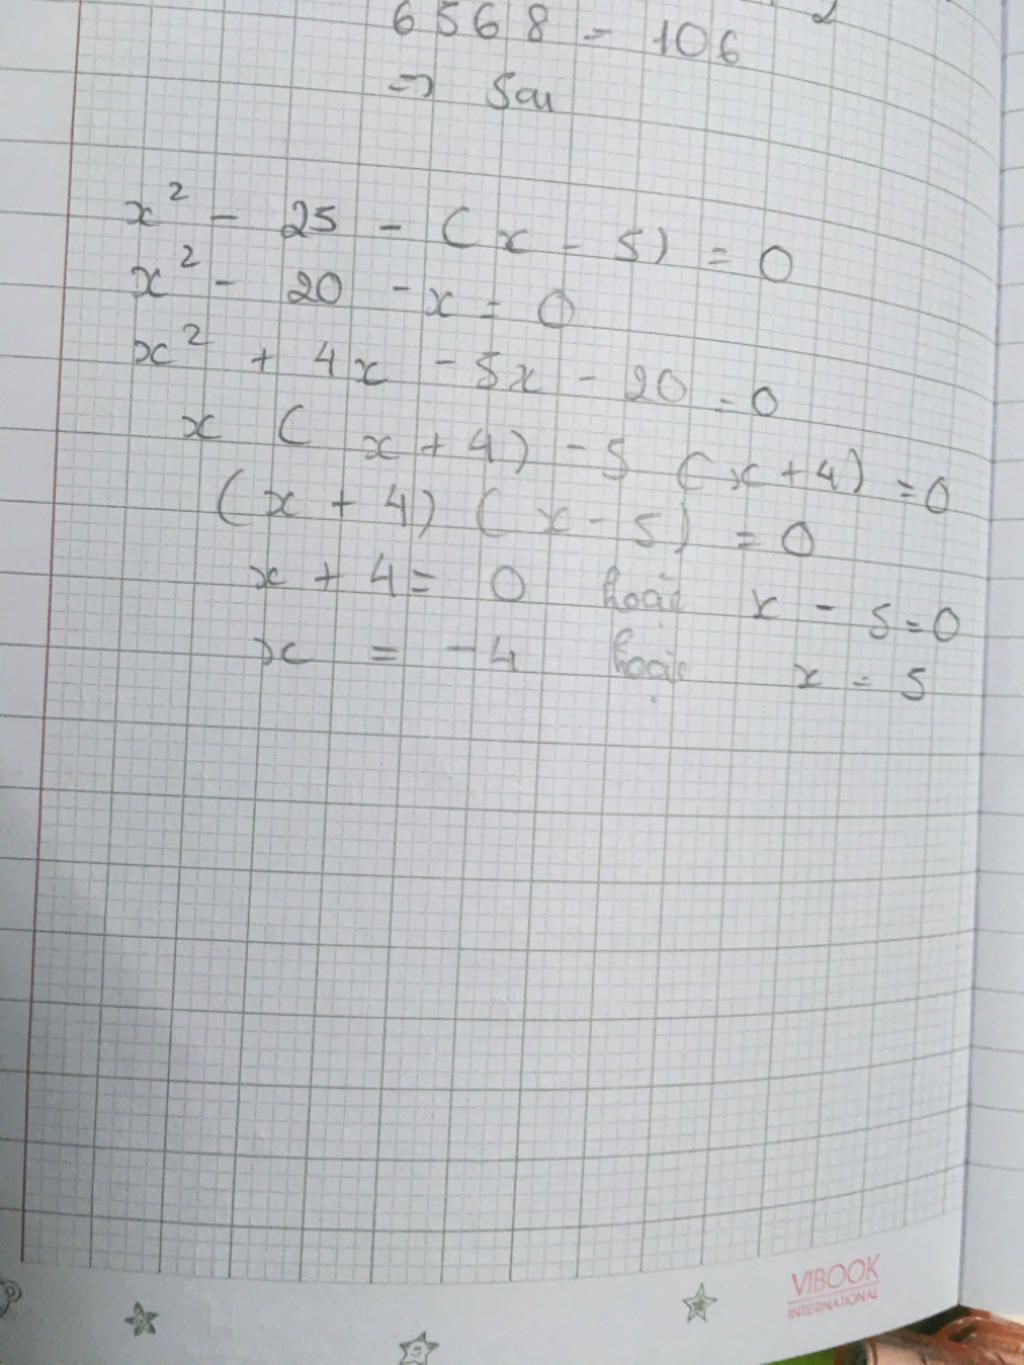 6568 = 106
⇒ Sai
x² - 25 - (x - 5) = 0
x² - 20 - x = 0
x² + 4x - 5x - 20 = 0
x (x + 4) - 5 (x + 4) = 0
(x + 4) (x - 5) = 0
x + 4 = 0 hoặc x - 5 = 0
x = -4 hoặc x = 5
VIBOOK
INTERNATIONAL